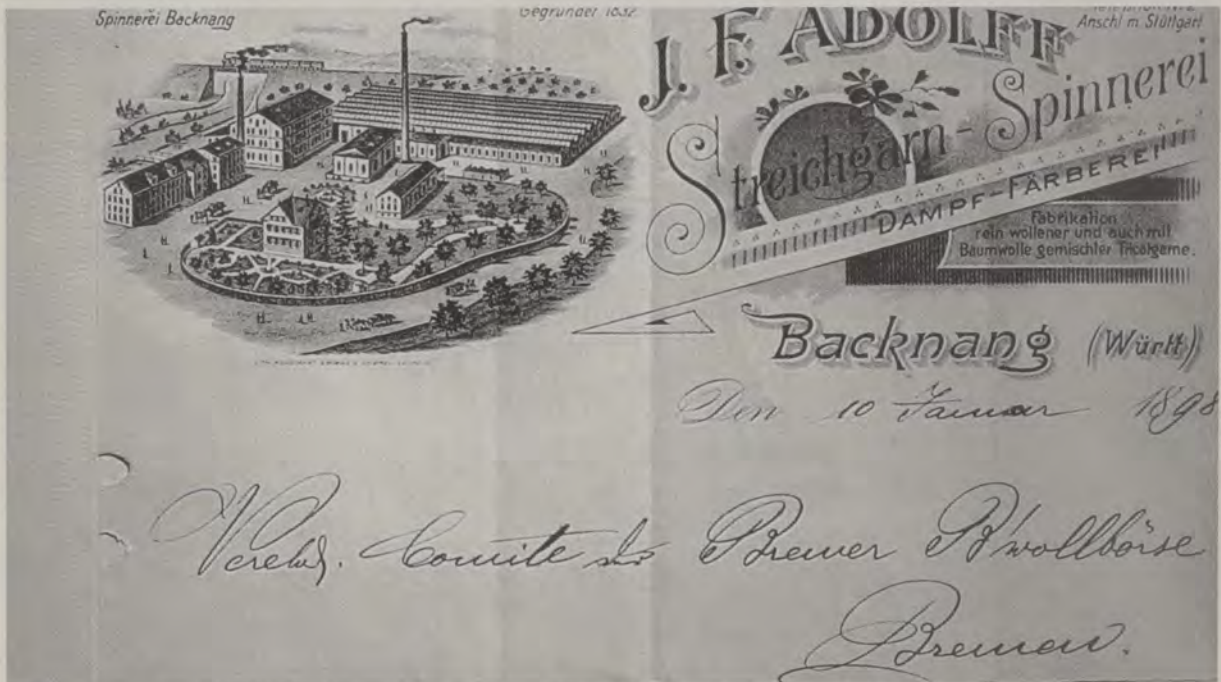 Spinnerei Backnang
Gegründet 1832
Anschl m. Stuttgart
J. F. ADOLFF
Streichgarn-Spinnerei
DAMPF-FÄRBEREI
Fabrikation
rein wollener und auch mit
Baumwolle gemischter Tricotgarne.
Backnang (Württ)
Den 10 Januar 1898
Verehrl. Comite der Bremer B'wollbörse
Bremen.